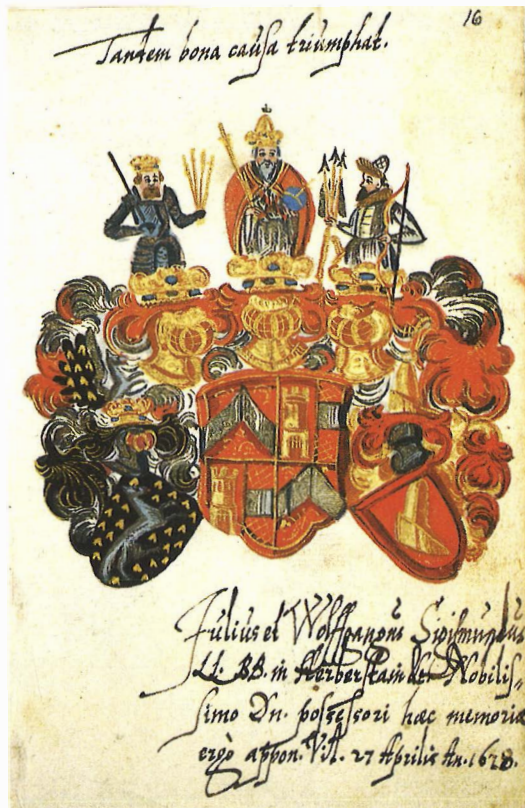 16
Tandem bona causa triumphat.
Julius et Wolffgangus Sigismundus
LL: BB. in Herberstain &c. Nobilis-
simo Dn. possessori hæc memoriæ
ergò appon. Vit. 27 Aprilis An. 1678.